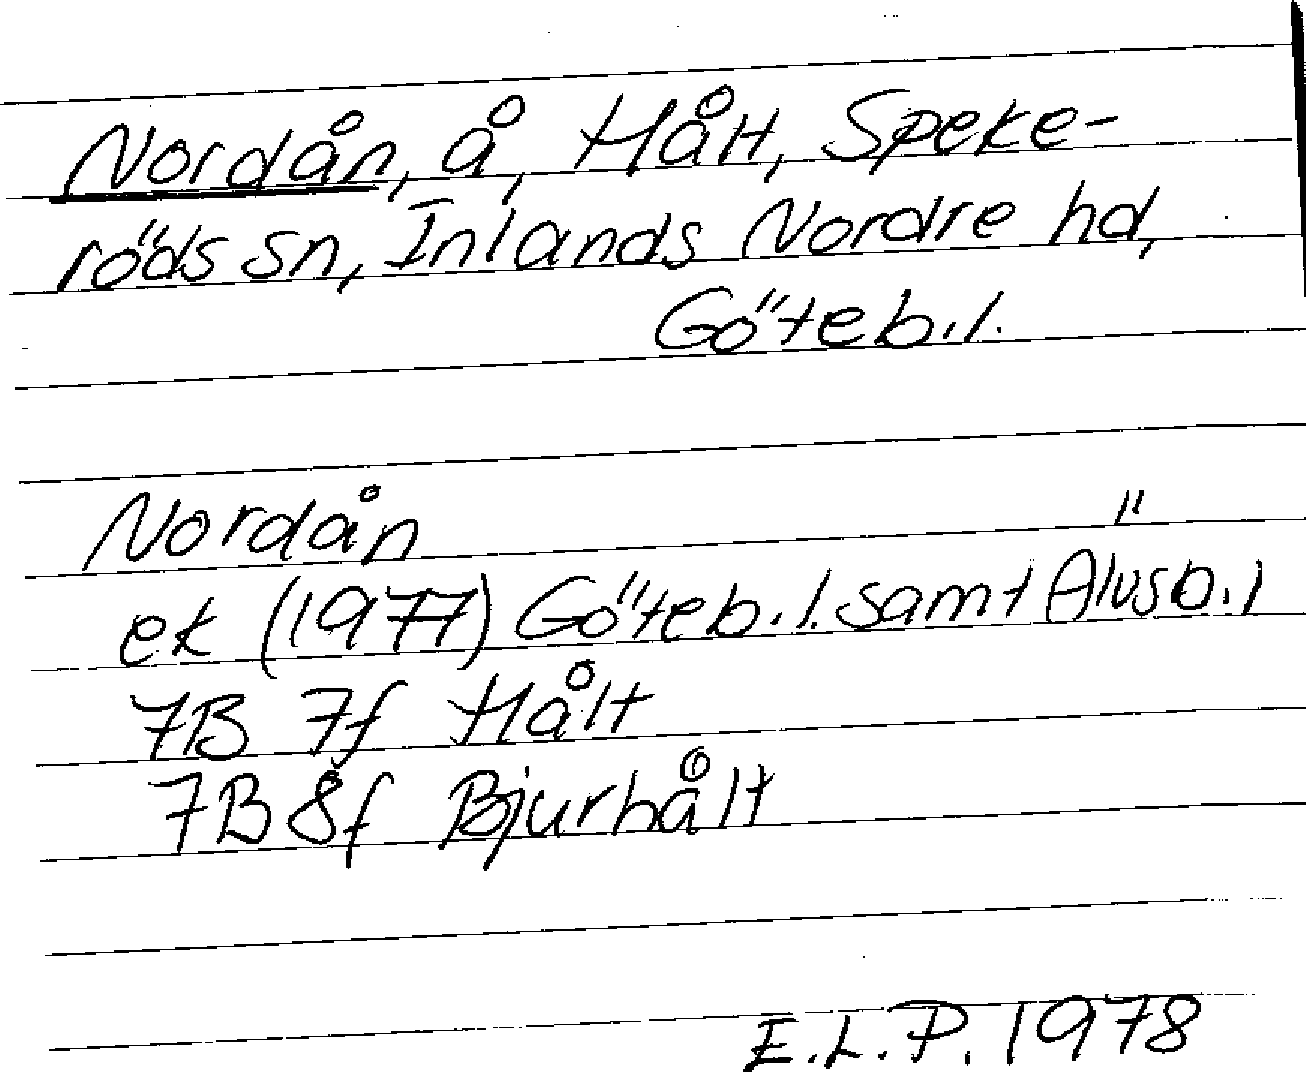 Nordån, å, Hålt, Speke-
röds sn, Inlands Nordre hd,
Göteb.l.
Nordån
ek (1977) Göteb.l. samt Älvsb.l
7B 7f Hålt
7B 8f Bjurhålt
E.L.P. 1978